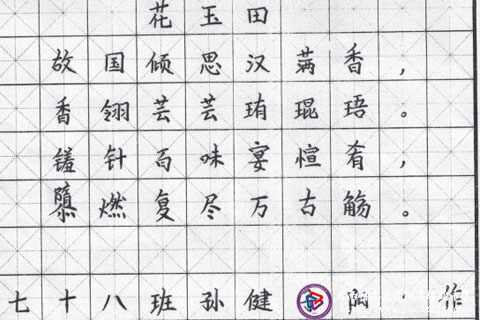 花玉田
故国倾思汉满香，
香翎芸芸珛琨珸。
针百味宴愃肴，
燃复尽万古觞。
七十八班孙健 作